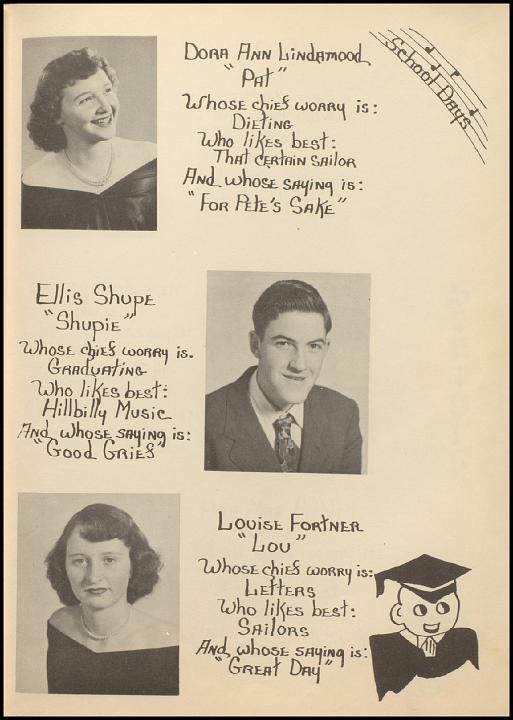 School Days
Dora Ann Lindamood
"Pat"
Whose chief worry is:
Dieting
Who likes best:
That certain sailor
And whose saying is:
"For Pete's Sake"
Ellis Shupe
"Shupie"
Whose chief worry is.
Graduating
Who likes best:
Hillbilly Music
And whose saying is:
"Good Grief"
Louise Fortner
"Lou"
Whose chief worry is:
Letters
Who likes best:
Sailors
And whose saying is:
"Great Day"